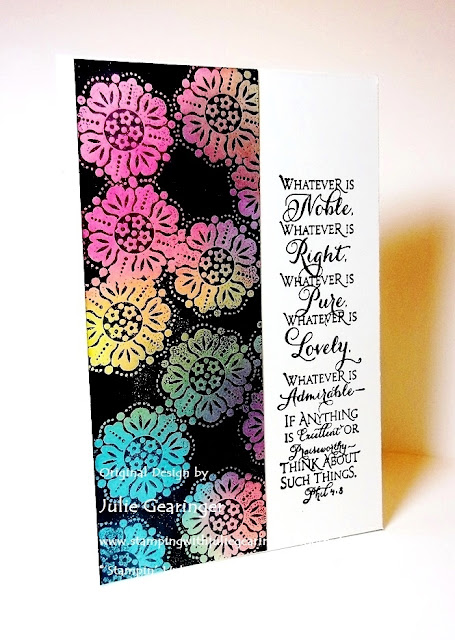 WHATEVER IS
Noble,
WHATEVER IS
Right,
WHATEVER IS
Pure,
WHATEVER IS
Lovely,
WHATEVER IS
Admirable—
IF ANYTHING
IS Excellent OR
Praiseworthy—
THINK ABOUT
SUCH THINGS.
Phil 4:8
Original Design by
Julie Gearinger